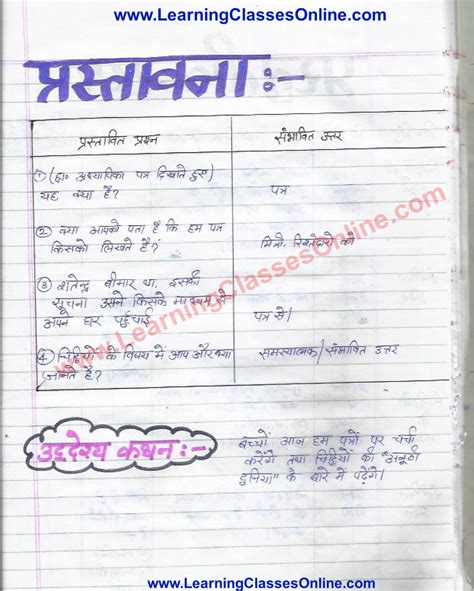 www.LearningClassesOnline.com
प्रस्तावना :-
प्रस्तावित प्रश्न
संभावित उत्तर
① (छा० अध्यापिका पत्र दिखाते हुए)
यह क्या है?
पत्र
② क्या आपको पता है कि हम पत्र
किसको लिखते हैं?
मित्रों, रिश्तेदारों को
③ शैलेन्द्र बीमार था, इसकी
सूचना उसने किसके माध्यम से
अपने घर पहुँचाई
पत्र से।
④ चिट्ठियों के विषय में आप और क्या
जानते हैं?
समस्यात्मक/संभावित उत्तर
उद्देश्य कथन :-
बच्चों आज हम पत्रों पर चर्चा
करेंगे तथा चिट्ठियों की "अनूठी
दुनिया" के बारे में पढ़ेंगे।
www.LearningClassesOnline.com
www.LearningClassesOnline.com